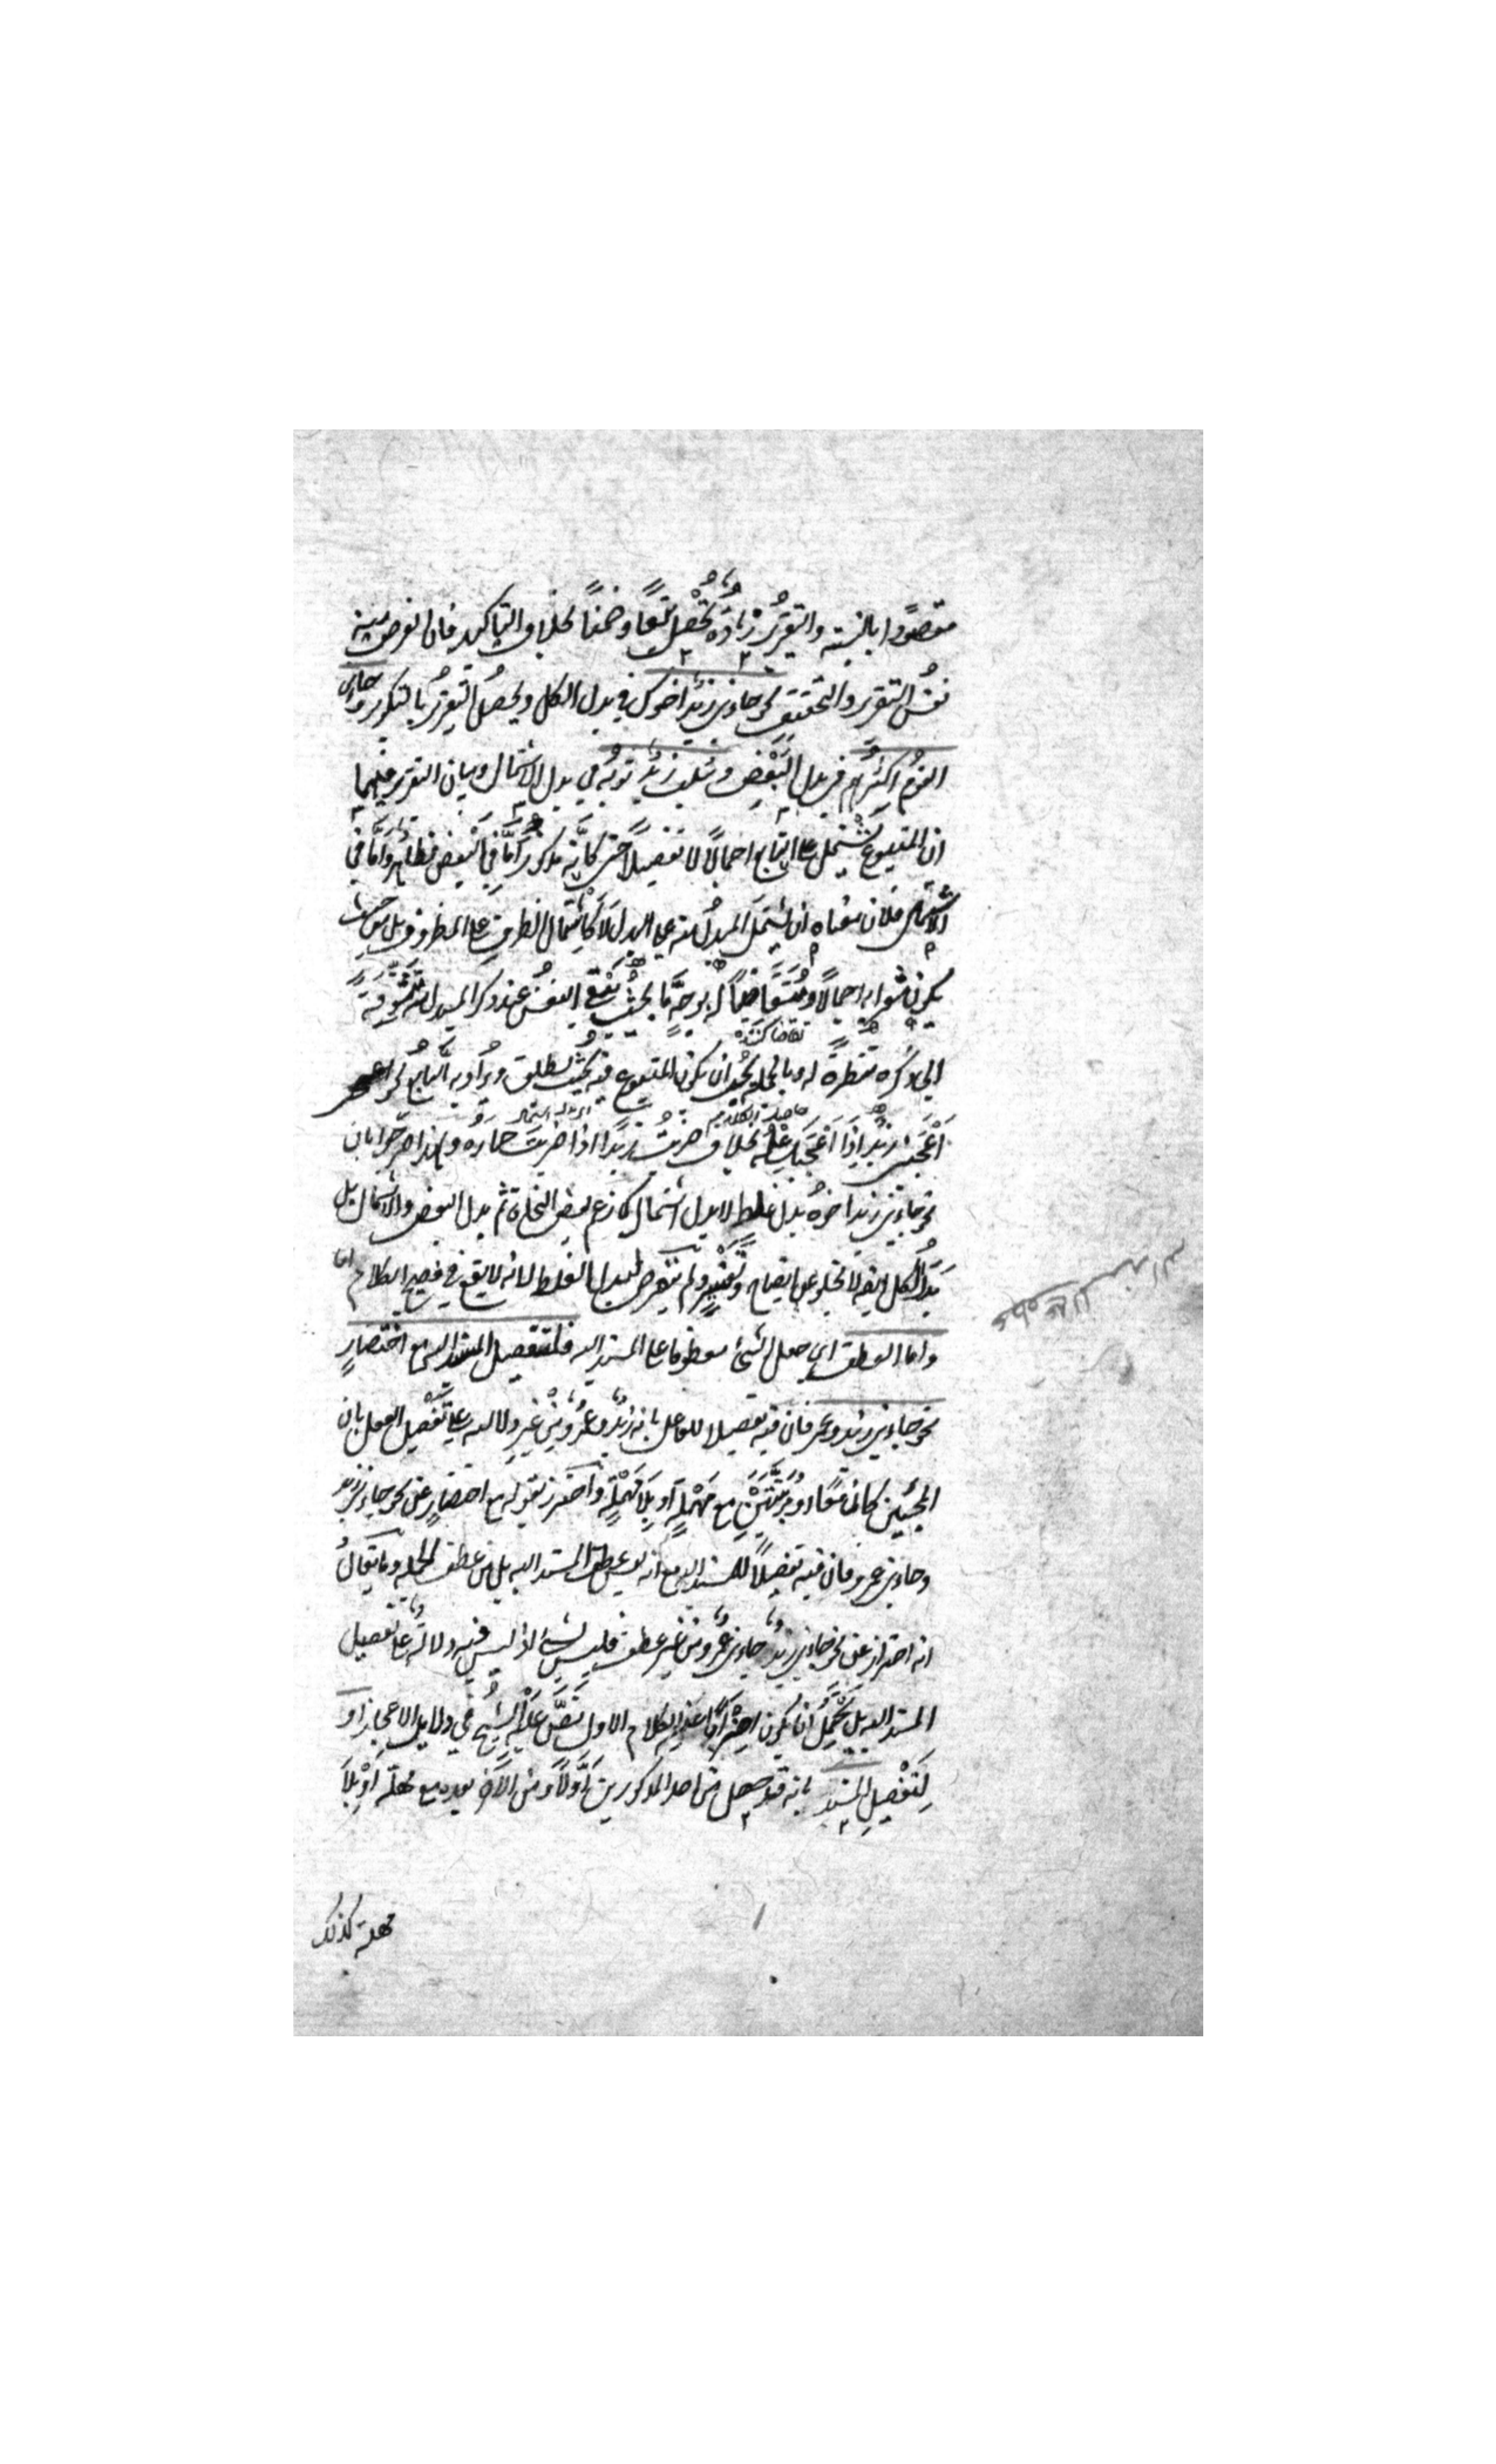 مقصودا بالنسبة والتقرير زيادة تحصل تبعا وضمنا بخلاف التاكيد فان الغرض منه
نفس التقرير والتحقيق نحو جاءنى زيد اخوك في بدل الكل ويحصل التقرير بالتكرير وجاءنى
القوم اكثرهم في بدل البعض وسلب زيد ثوبه في بدل الاشتمال وبيان التقرير فيهما
ان المتبوع يشتمل على التابع اجمالا لا تفصيلا حتى كانه مذكور اما في البعض فظاهر واما في
الاشتمال فلان معناه ان يشتمل المبدل منه على البدل لا كاشتمال الظرف على المظروف بل من حيث
يكون مشعرا به اجمالا ومتقاضيا له بوجه ما بحيث تبقى النفس عند ذكر المبدل منه متشوقة
تقاضا كننده
الى ذكره منتظرة له وبالجملة يجب ان يكون المتبوع فيه بحيث يطلق ويراد به التابع نحو
اعجبنى زيد اذا اعجبك علمه بخلاف ضربت زيدا اذا ضربت حماره ولهذا صرحوا بان
نحو جاءنى زيد اخوه بدل غلط لا بدل اشتمال كما زعم بعض النحاة ثم بدل البعض والاشتمال بل
بدل الكل ايضا لا يخلو عن ايضاح وتفسير ولم يتعرض لبدل الغلط لانه لا يقع في فصيح الكلام
واما العطف اى جعل الشئ معطوفا على المسند اليه فلتفصيل المسند اليه مع اختصار
نحو جاءنى زيد وعمرو فان فيه تفصيلا للفاعل بانه زيد وعمرو من غير دلالة على تفصيل الفعل بان
المجيئين كانا معا او مرتبين مع مهلة او بلا مهلة واحترز بقوله مع اختصار عن نحو جاءنى زيد
وجاءنى عمرو فان فيه تفصيلا للمسند اليه مع انه ليس من عطف المسند اليه بل من عطف الجملة وما يقال
انه احتراز عن نحو جاءنى زيد جاءنى عمرو من غير عطف فليس بشئ اذ ليس فيه دلالة على تفصيل
المسند اليه بل يحتمل ان يكون اضرابا عن الكلام الاول نص عليه الشيخ في دلايل الاعجاز او
لتفصيل المسند بانه قد حصل من احد المذكورين اولا ومن الآخر بعده مع مهلة او بلا
مهلة كذلك